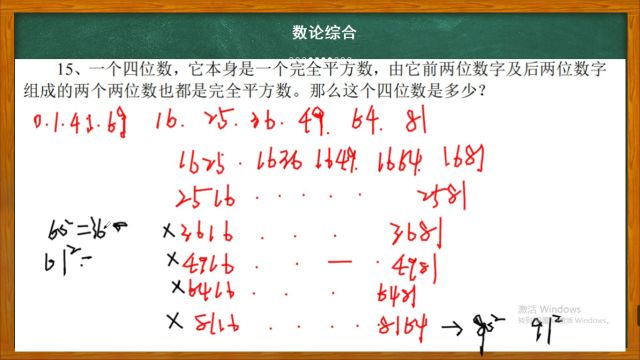 数论综合
15、一个四位数，它本身是一个完全平方数，由它前两位数字及后两位数字
组成的两个两位数也都是完全平方数。那么这个四位数是多少？
0.1.4.5.69 16. 25. 36. 49. 64. 81
1625. 1636 1649. 1664. 1681
2516 . . . . . 2581
60²=360
×3616 . . . 3681
61²=
×4916 . . — . 4981
×6416 . . . . 6481
×8116 . . . . . 8164 → 90² 91²
激活 Windows